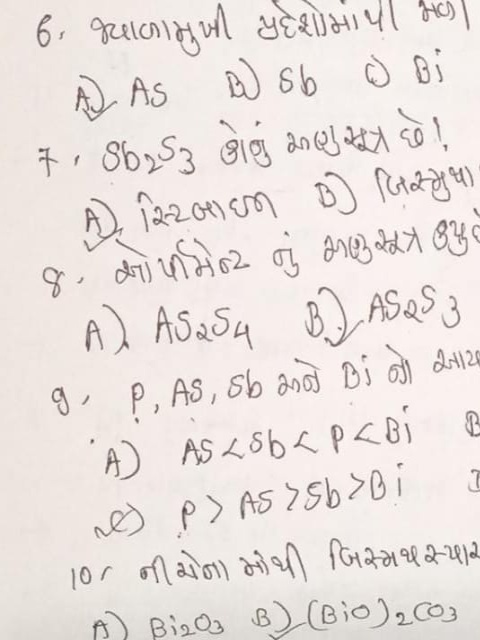 6. જ્વાળામુખી પ્રદેશોમાંથી મળ
A) As B) Sb C) Bi
7. Sb2S3 કોનું અણુસૂત્ર છે!
A) સ્ટિબાઇન B) બિસ્મુથા
8. ઓર્પીમેન્ટ નું અણુસૂત્ર
A) AS2S4 B) AS2S3
9. P, AS, Sb અને Bi નો આય
A) AS < Sb < P < Bi B
C) P > AS > Sb > Bi
10. નીચેના માંથી બિસ્મથસ્પાર
A) Bi2O3 B) (BiO)2CO3